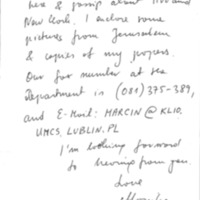 here & gossip about 
New York. I enclose some
pictures from Jerusalem
& copies of my papers.
Our fax number at the
Department is (081) 375-389,
and E-Mail: MARCIN @ KLIO.
UMCS.LUBLIN.PL
I'm looking forward
to hearing from you.
Love